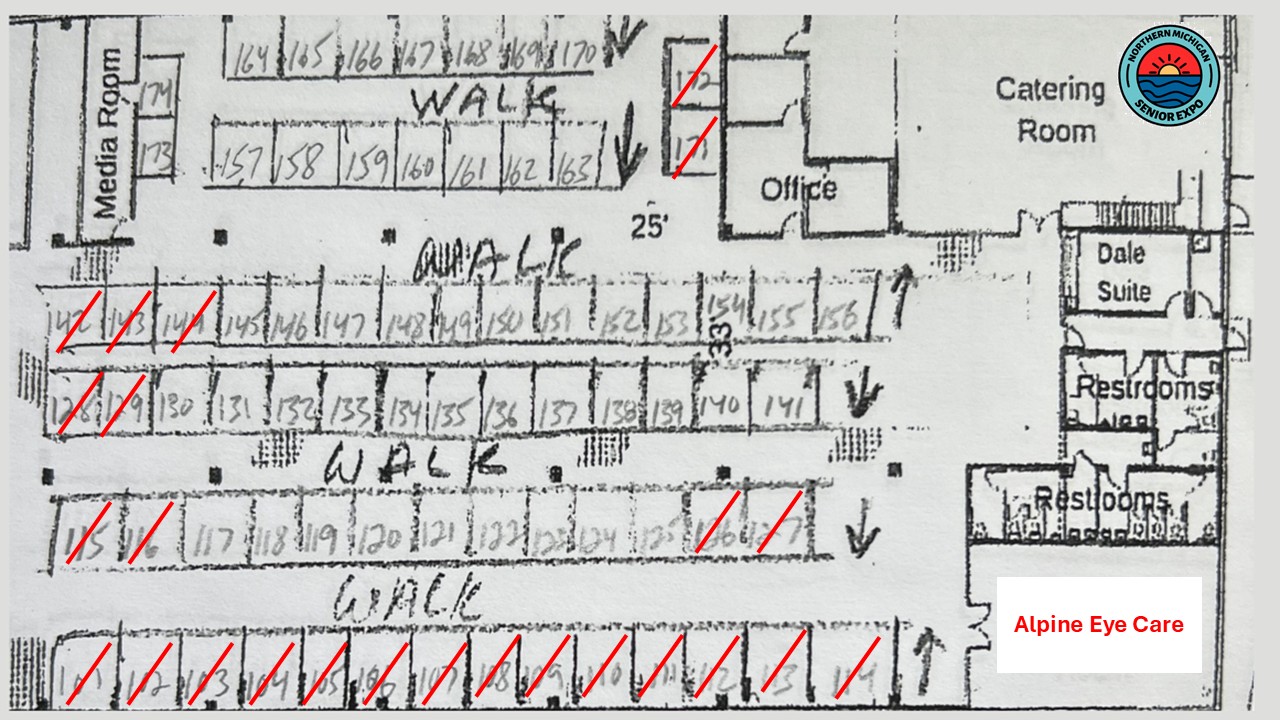 164 165 166 167 168 169 170
WALK
172
174
Media Room
Catering
Room
NORTHERN MICHIGAN
SENIOR EXPO
157 158 159 160 161 162 163
171
173
Office
25'
WALK
Dale
Suite
142 143 144 145 146 147 148 149 150 151 152 153 154 155 156
33
128 129 130 131 132 133 134 135 136 137 138 139 140 141
Restrooms
WALK
Restrooms
115 116 117 118 119 120 121 122 123 124 125 126 127
WALK
Alpine Eye Care
101 102 103 104 105 106 107 108 109 110 111 112 113 114